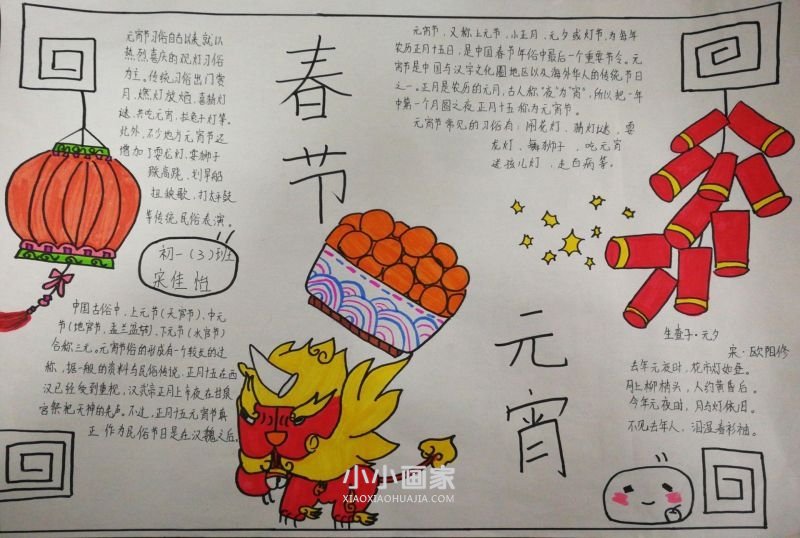 元宵节习俗自古以来就以
热烈喜庆的观灯习俗
为主。传统习俗出门赏
月、燃灯放焰、喜猜灯
谜、共吃元宵、拉兔子灯等。
此外,不少地方元宵节还
增加了耍龙灯、耍狮子
踩高跷、划旱船
扭秧歌、打太平鼓
等传统民俗表演。
初一(3)班
宋佳怡
中国古俗中,上元节(天官节)、中元
节(地官节,盂兰盆节)、下元节(水官节)
合称三元。元宵节俗的形成有一个较长的过
称,据一般的资料与民俗传说,正月十五在西
汉已经受到重视,汉武帝正月上辛夜在甘泉
宫祭祀天神的先声。不过,正月十五元宵节真
正作为民俗节日是在汉魏之后
春节
元宵
元宵节,又称上元节,小正月,元夕或灯节,为每年
农历正月十五日,是中国春节年俗中最后一个重要节令。元
宵节是中国与汉字文化圈地区以及海外华人的传统节日
之一。正月是农历的元月,古人称"夜"为"宵",所以把一年
中第一个月圆之夜正月十五称为元宵节。
元宵节常见的习俗有:闹花灯、猜灯谜、耍
龙灯、舞狮子、吃元宵
迷孩儿灯、走白病等。
生查子·元夕
宋·欧阳修
去年元夜时,花市灯如昼。
月上柳梢头,人约黄昏后。
今年元夜时,月与灯依旧。
不见去年人,泪湿春衫袖。
小小画家
XIAOXIAOHUAJIA.COM